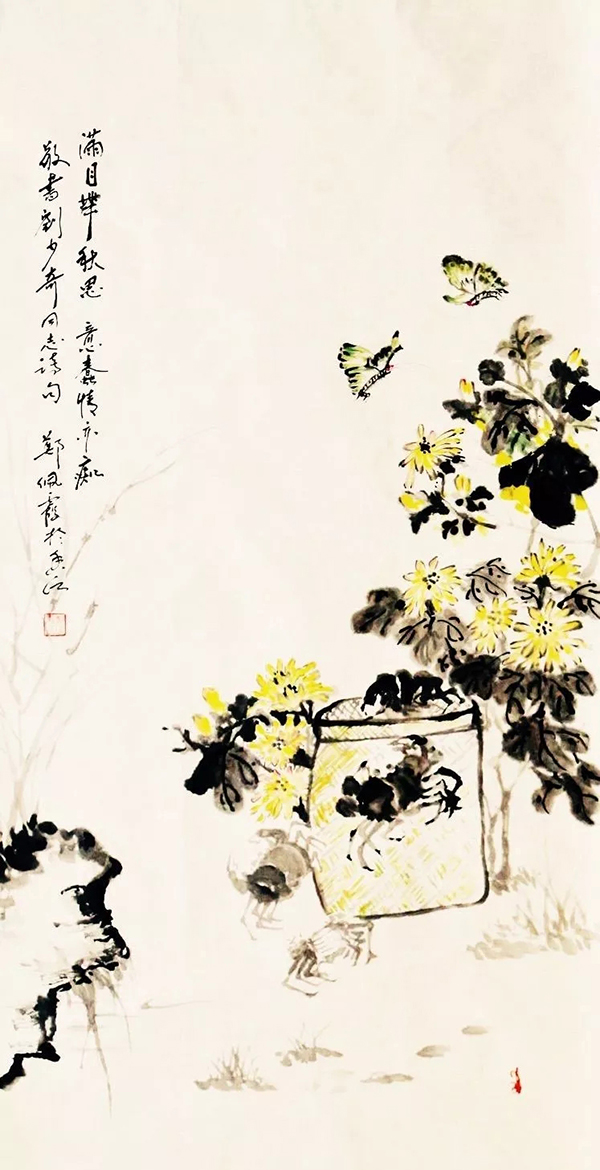 滿目華秋思 意蠢情亦痴
敬書劉少奇同志詩句 鄭佩霞於香江